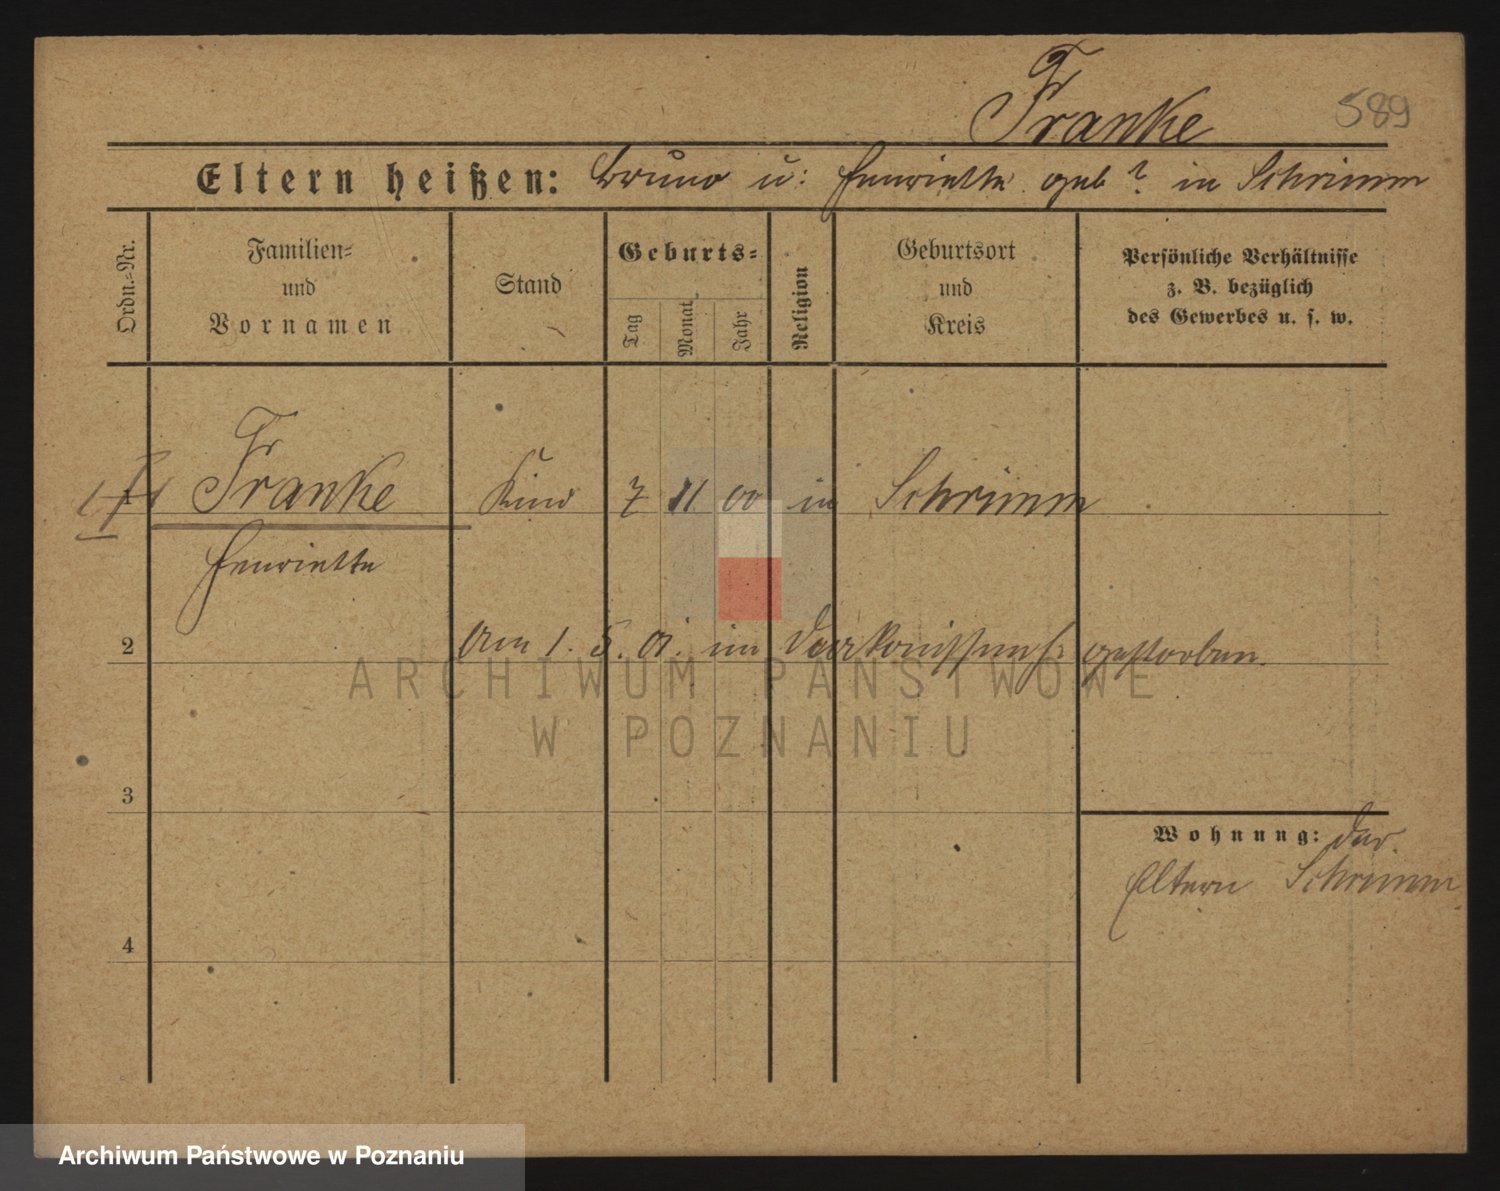 Franke 589
Eltern heißen: Bruno u: Henriette geb? in Schrimm
Ordn.=Nr.
Familien=
und
Vornamen
Stand
Geburts=
Tag
Monat
Jahr
Religion
Geburtsort
und
Kreis
Persönliche Verhältnisse
z. B. bezüglich
des Gewerbes u. s. w.
Franke Kind 7 11 00 in Schrimm
Henriette
2 Am 1. 5. 01. im Diakonissenh: gestorben.
ARCHIWUM PAŃSTWOWE
W POZNANIU
3
Wohnung: der
Eltern Schrimm
4
Archiwum Państwowe w Poznaniu